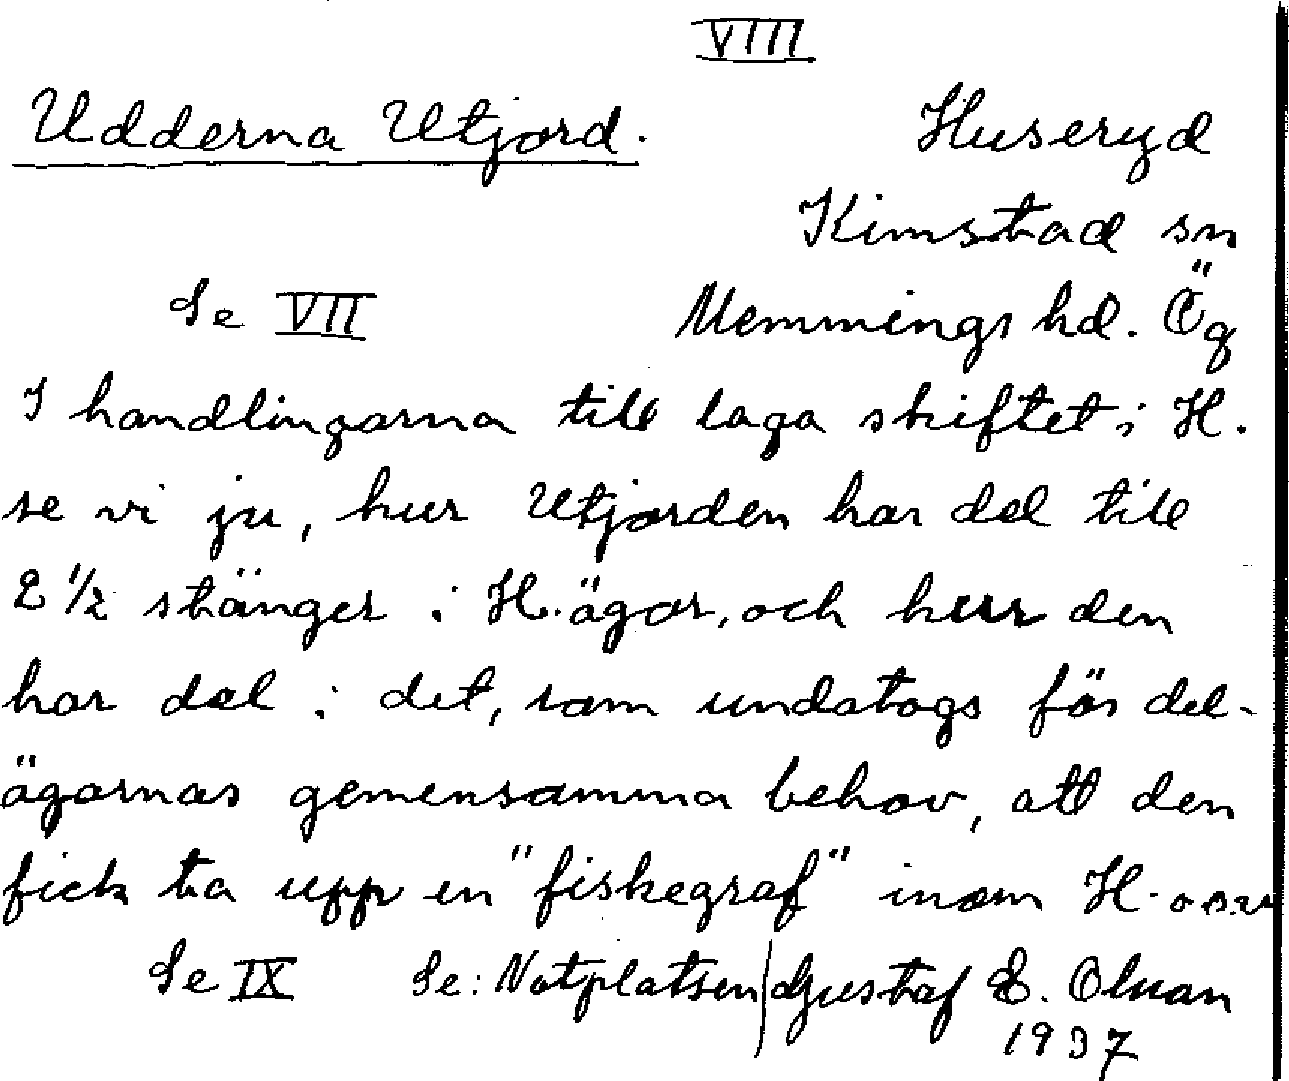 VIII
Udderna Utjord. Huseryd
Kimstad sn
Se VII Memmings hd. Ög
I handlingarna till laga skiftet i H.
se vi ju, hur Utjorden har del till
2 1/2 stänger i H. ägor, och hur den
har del i det, som undatogs för del-
ägarnas gemensamma behov, att den
fick ta upp en "fiskegraf" inom H. o.s.v
Se IX Se: Notplatsen Gustaf E. Olsson
1937